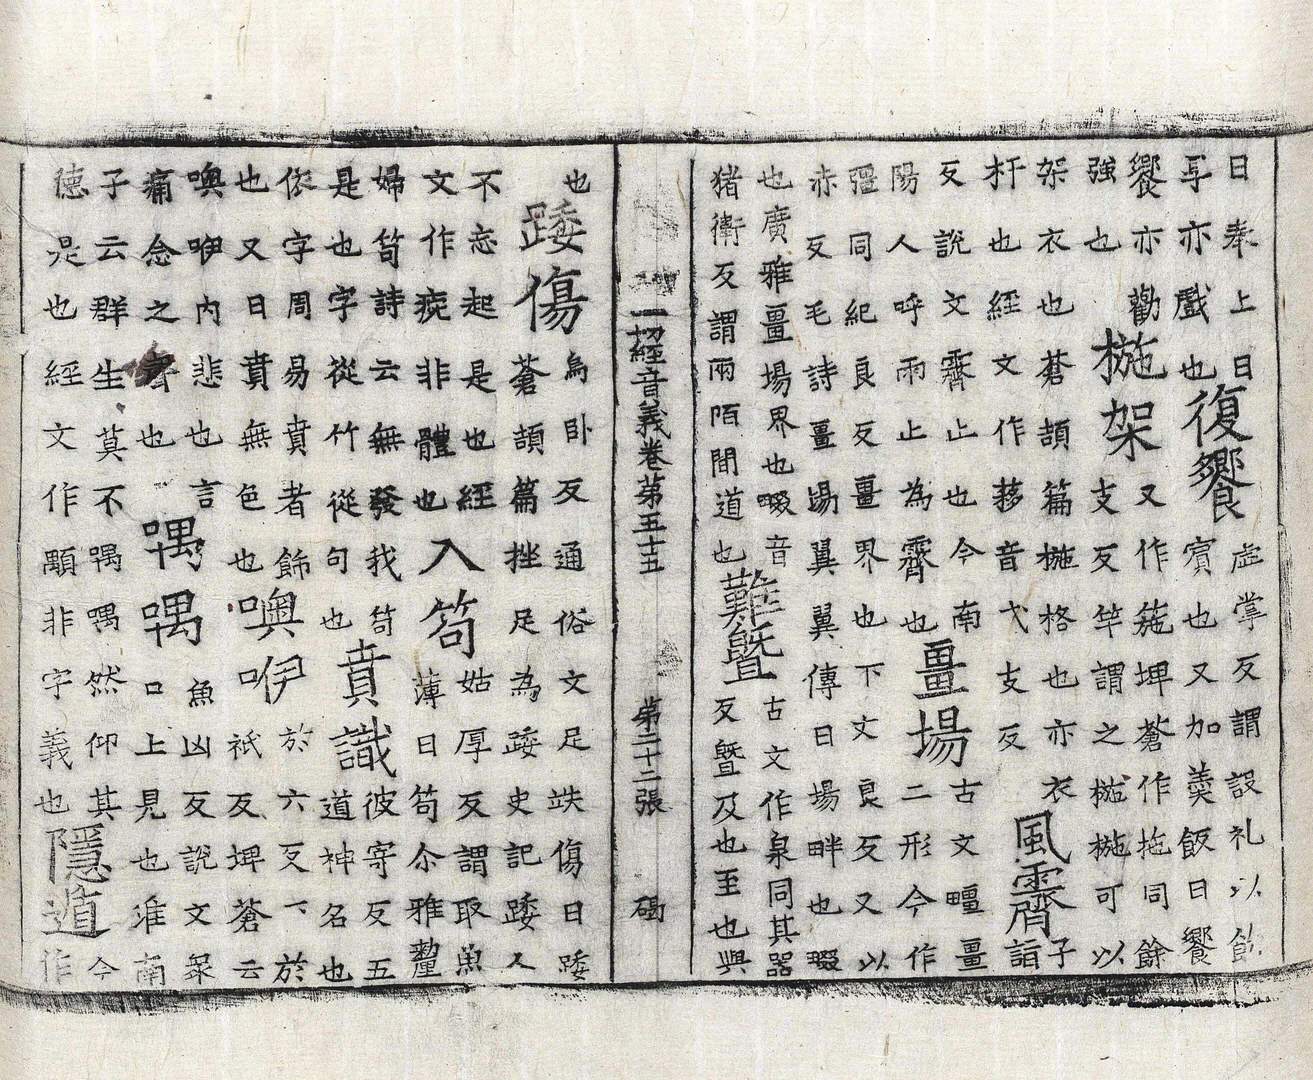 日奉上日
孚亦戲也
復饗
虛掌反謂設礼以飲
賓也又加羮飯曰饗
饗亦勸
強也
椸架
又作箷埤蒼作拖同餘
支反竿謂之椸椸可以
架衣也蒼頡篇椸格也亦衣
杆也經文作栘音弋支反
風霽
子
詣
反說文霽止也今南
陽人呼雨止為霽也
畺場
古文疆畺
二形今作
彊同紀良反畺界也下文良反又以
赤反毛詩畺場翼翼傳曰場畔也畷
也廣雅畺場界也畷音
猪衛反謂兩陌間道也
難暨
古文作泉同其器
反暨及也至也與
一切經音義卷第五十五 第二十二張 碣
也
踒傷
烏卧反通俗文足跌傷曰踒
蒼頡篇挫足為踒史記踒人
不忘起是也經
文作痿非體也
入笱
姑厚反謂取魚
薄曰笱尒雅釐
婦笱詩云無發我笱
是也字從竹從句也
賁識
彼寄反五
道神名也
依字周易賁者飾
也又曰賁無色也
噢咿
於六反下於
祇反埤蒼云
噢咿內悲也言
痛念之聲也
喁喁
魚凶反說文衆
口上見也淮南
子云群生莫不喁喁然仰其
德是也經文作顒非字義也
隱遁
今
作